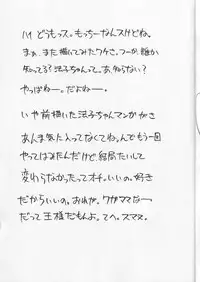 ハイ どもっス。もっちーなんスけどね。
まぁ、また描いてみたワケさ。つーか、誰か
知ってる?涼子ちゃんって。あ、知らない?
やっぱねー。だよねー。
いや前描いた涼子ちゃんマンガがさ
あんま気入ってなくてね。んでもう一回
やってはみたんだけど、結局たいして
変わらなかったってオチ。いいの。好き
だからいいの。おれが、ワガママなー
だって王様だもんよ。てへ。スマヌ。